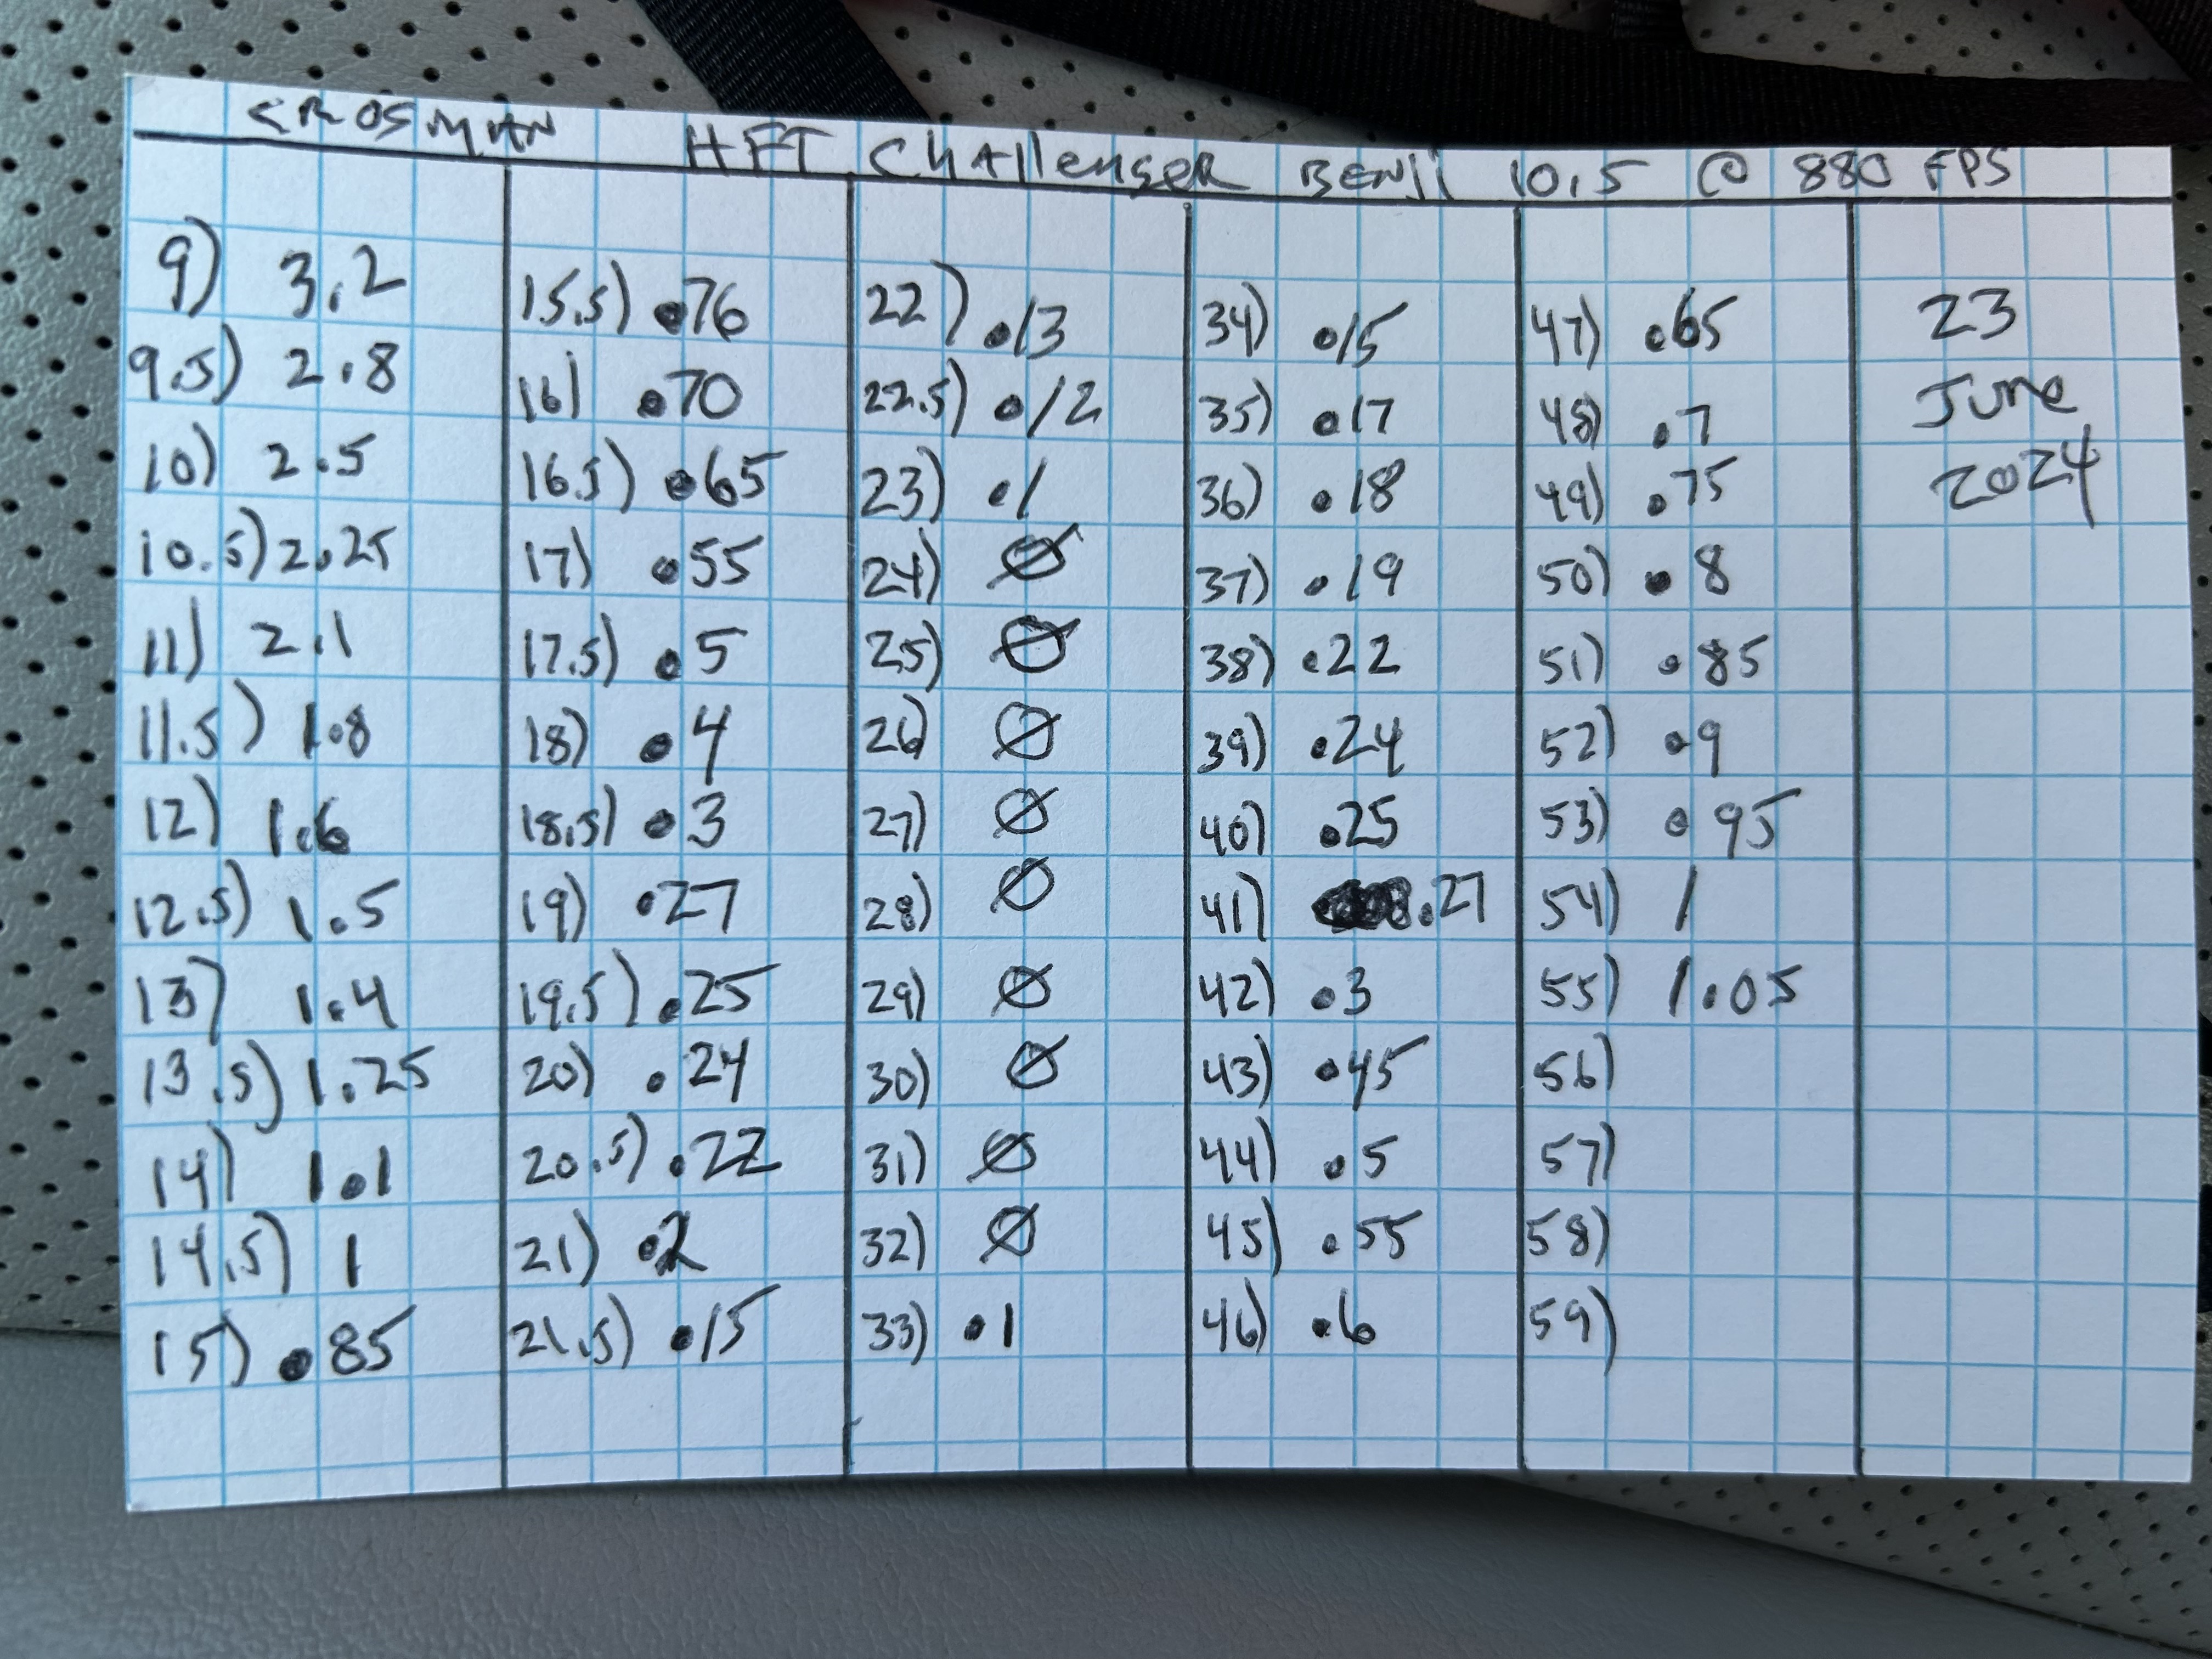 CROSMAN HFT Challenger BENJI 10.5 @ 880 FPS
9) 3.2
9.5) 2.8
10) 2.5
10.5) 2.25
11) 2.1
11.5) 1.8
12) 1.6
12.5) 1.5
13) 1.4
13.5) 1.25
14) 1.1
14.5) 1
15) .85
15.5) .76
16) .70
16.5) .65
17) .55
17.5) .5
18) .4
18.5) .3
19) .27
19.5) .25
20) .24
20.5) .22
21) .2
21.5) .15
22) .13
22.5) .12
23) .1
24) Ø
25) Ø
26) Ø
27) Ø
28) Ø
29) Ø
30) Ø
31) Ø
32) Ø
33) .1
34) .15
35) .17
36) .18
37) .19
38) .22
39) .24
40) .25
41) .27
42) .3
43) .45
44) .5
45) .55
46) .6
47) .65
48) .7
49) .75
50) .8
51) .85
52) .9
53) .95
54) 1
55) 1.05
56)
57)
58)
59)
23
June
2024